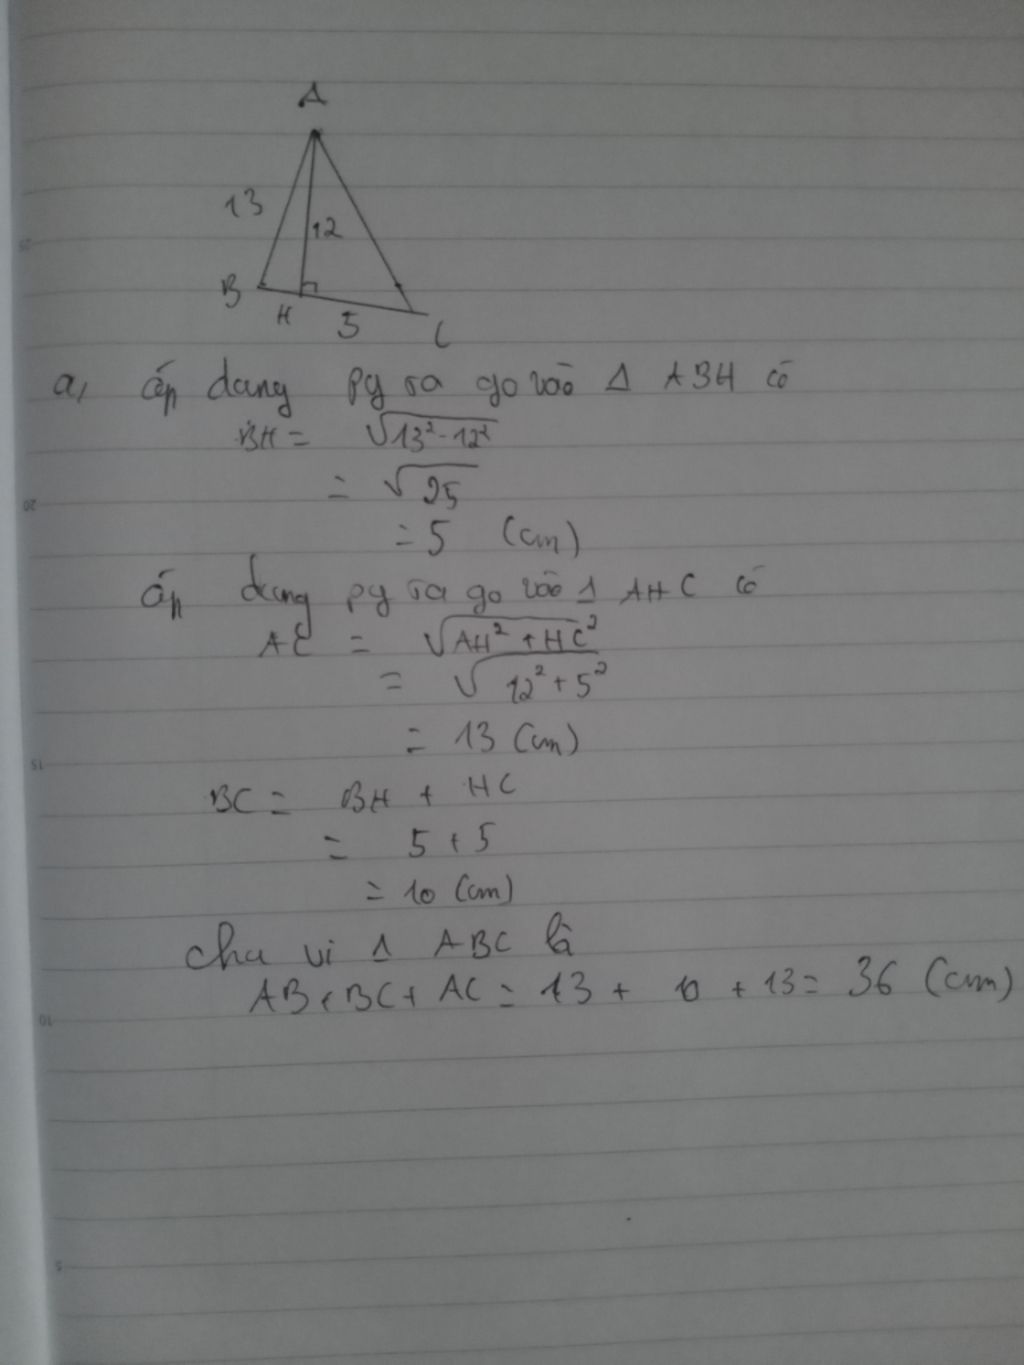 A
13
12
B
H
5
C
a, áp dụng py ta go vào Δ ABH có
BH = √13² - 12²
= √25
= 5 (cm)
áp dụng py ta go vào Δ AHC có
AC = √AH² + HC²
= √12² + 5²
= 13 (cm)
BC = BH + HC
= 5 + 5
= 10 (cm)
chu vi Δ ABC là
AB + BC + AC = 13 + 10 + 13 = 36 (cm)
25
20
15
10
5